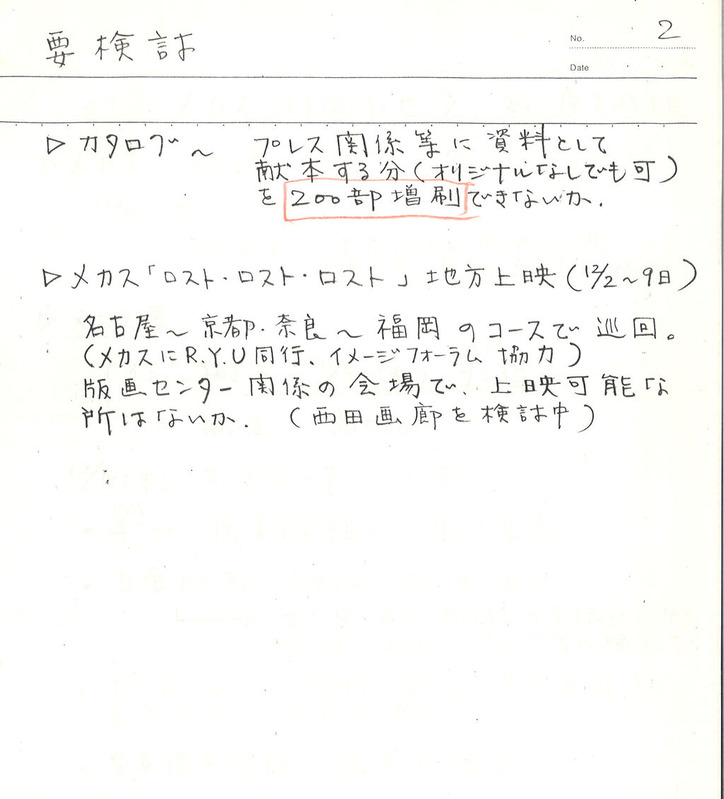 要検討
No. 2
Date
▷ カタログ〜 プレス関係等に資料として
献本する分(オリジナルなしでも可)
を200部増刷できないか.
▷ メカス「ロスト・ロスト・ロスト」地方上映(12/2〜9日)
名古屋〜京都・奈良〜福岡のコースで巡回。
(メカスにR.Y.U同行、イメージフォーラム協力)
版画センター関係の会場で、上映可能な
所はないか. (西田画廊を検討中)